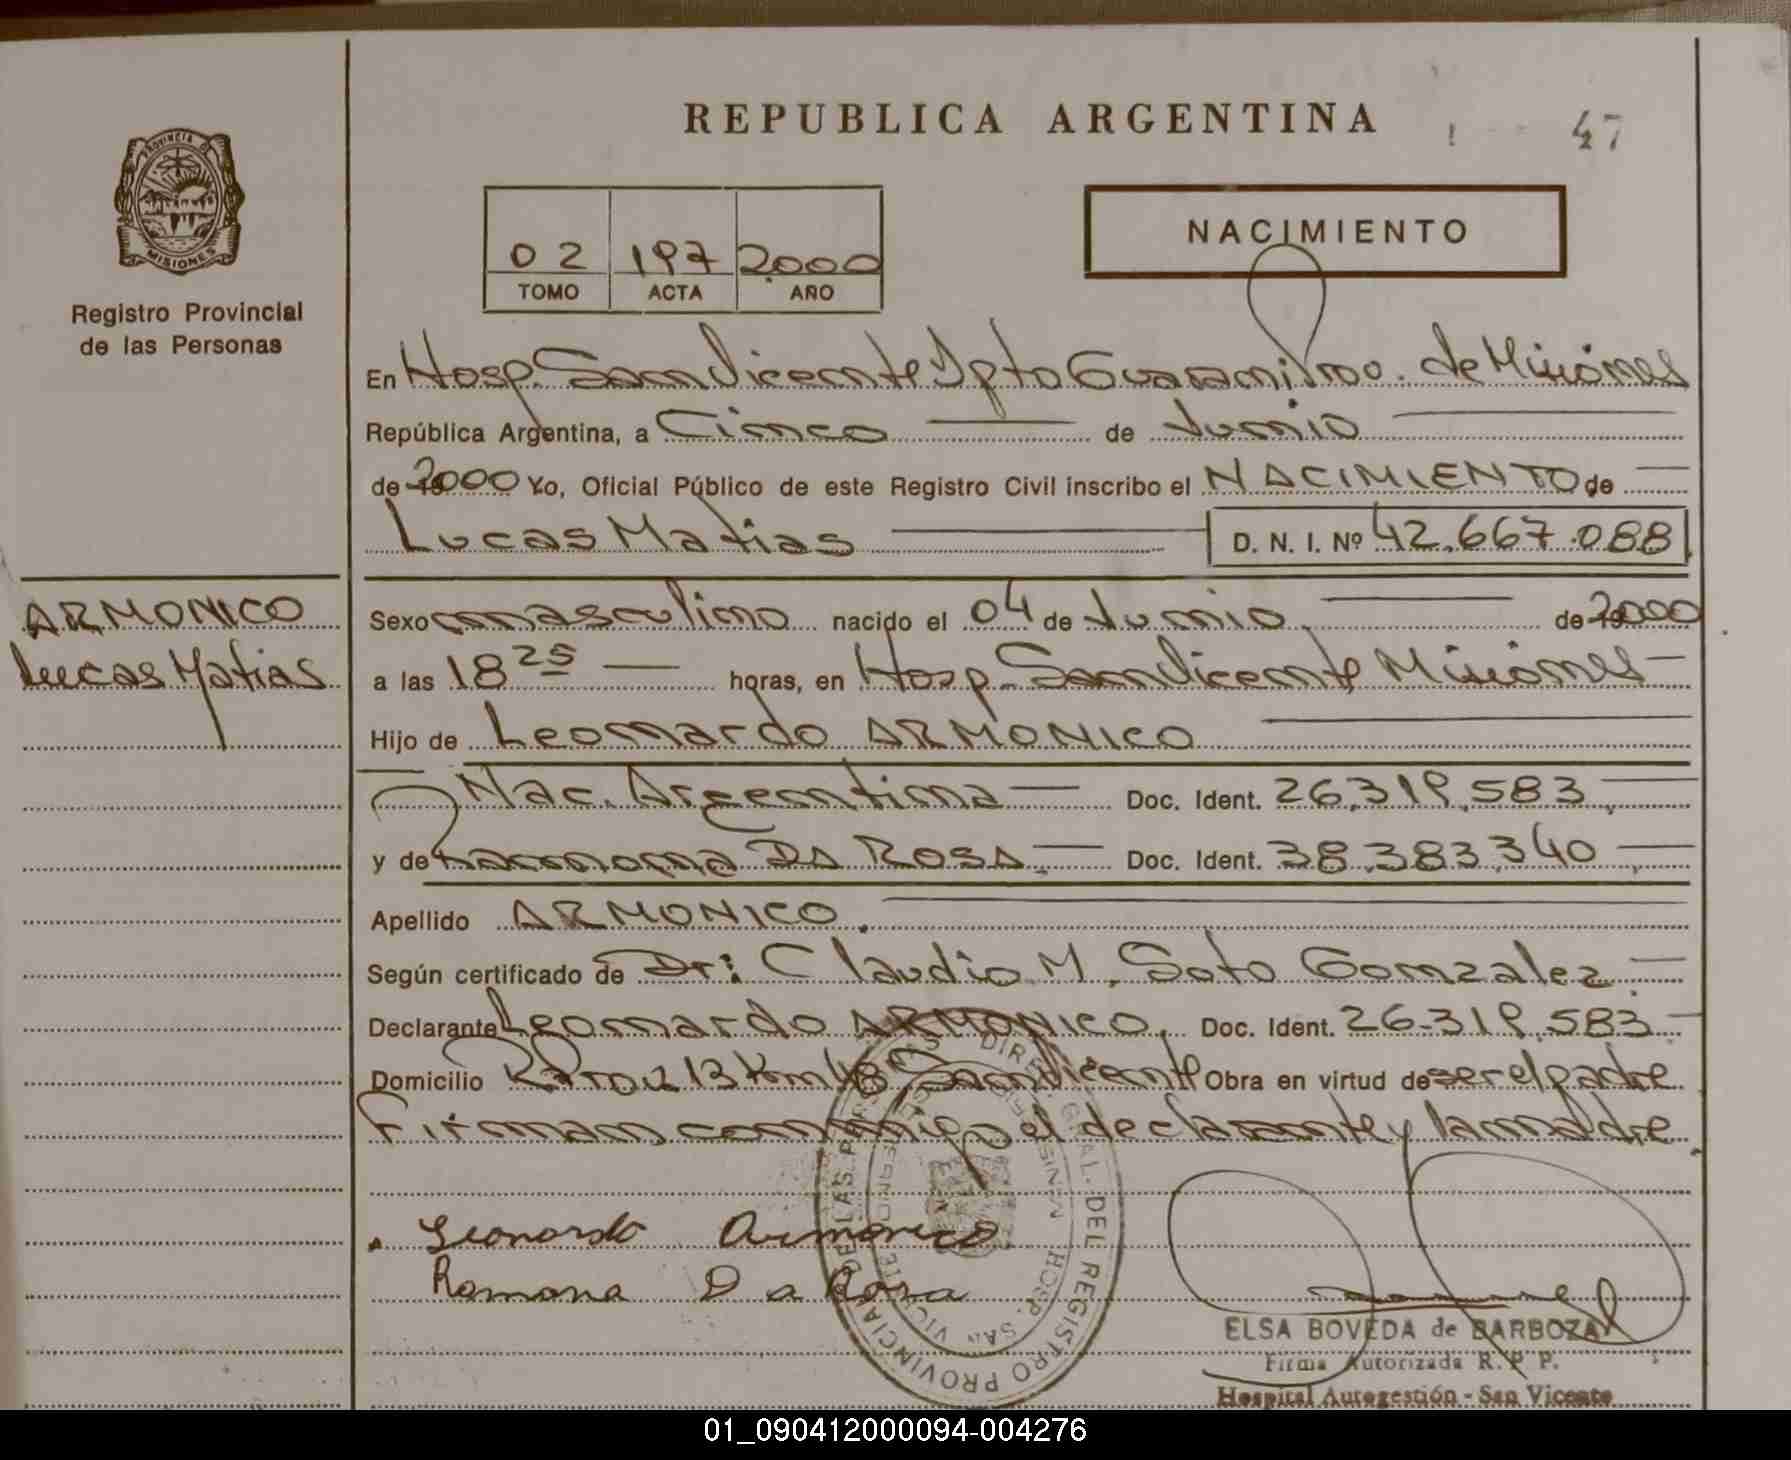 REPUBLICA ARGENTINA
47
PROVINCIA D
MISIONES
Registro Provincial
de las Personas
02 197 2000
TOMO ACTA AÑO
NACIMIENTO
En Hosp. San Vicente Dpto Guarani Prov. de Misiones
República Argentina, a Cinco de Junio
de 2000 Yo, Oficial Público de este Registro Civil inscribo el NACIMIENTO de
Lucas Matias D. N. I. Nº 42.667.088
ARMONICO
Lucas Matias
Sexo masculino nacido el 04 de Junio de 2000
a las 18 25 horas, en Hosp. San Vicente Misiones
Hijo de Leonardo ARMONICO
Nac. Argentina Doc. Ident. 26.319.583
y de Ramona DA ROSA Doc. Ident. 38.383.340
Apellido ARMONICO.
Según certificado de Dr: Claudio M. Soto Gonzalez
Declarante Leonardo ARMONICO. Doc. Ident. 26.319.583
Domicilio Ruta 13 Km 48 San Vicente Obra en virtud de ser el padre
Firman conmigo el declarante y la madre.
Leonardo Armonico
Ramona Da Rosa
DIREC. GRAL. DEL REGISTRO PROVINCIAL DE LAS PERSONAS
SAN VICENTE
ELSA BOVEDA de BARBOZA
Firma Autorizada R. P. P.
Hospital Autogestión - San Vicente
01_090412000094-004276